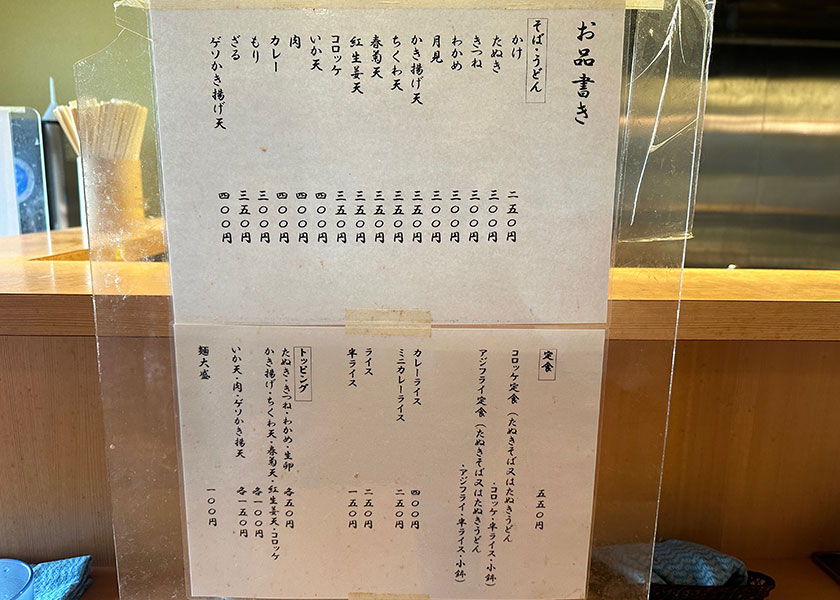 お品書き
そば・うどん
かけ 二五〇円
たぬき 三〇〇円
きつね 三〇〇円
わかめ 三〇〇円
月見 三〇〇円
かき揚げ天 三五〇円
ちくわ天 三五〇円
春菊天 三五〇円
紅生姜天 三五〇円
コロッケ 三五〇円
いか天 四〇〇円
肉 四〇〇円
カレー 四〇〇円
もり 三〇〇円
ざる 三五〇円
ゲソかき揚げ天 四〇〇円
定食 五五〇円
コロッケ定食(たぬきそば又はたぬきうどん
・コロッケ・半ライス・小鉢)
アジフライ定食(たぬきそば又はたぬきうどん
・アジフライ・半ライス・小鉢)
カレーライス 四〇〇円
ミニカレーライス 二五〇円
ライス 二五〇円
半ライス 一五〇円
トッピング
たぬき・きつね・わかめ・生卵 各五〇円
かき揚げ・ちくわ天・春菊天・紅生姜天・コロッケ
各一〇〇円
いか天・肉・ゲソかき揚天 各一五〇円
麺大盛 一〇〇円